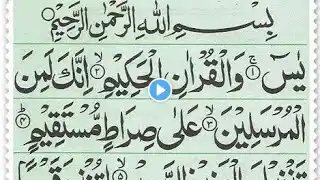 بِسْمِ اللّٰهِ الرَّحْمٰنِ الرَّحِيْمِ
يٰسٓ ۚ﴿۱﴾ وَالْقُرْاٰنِ الْحَكِيْمِ ۙ﴿۲﴾ اِنَّكَ لَمِنَ
الْمُرْسَلِيْنَ ۙ﴿۳﴾ عَلٰى صِرَاطٍ مُّسْتَقِيْمٍ ؕ﴿۴﴾